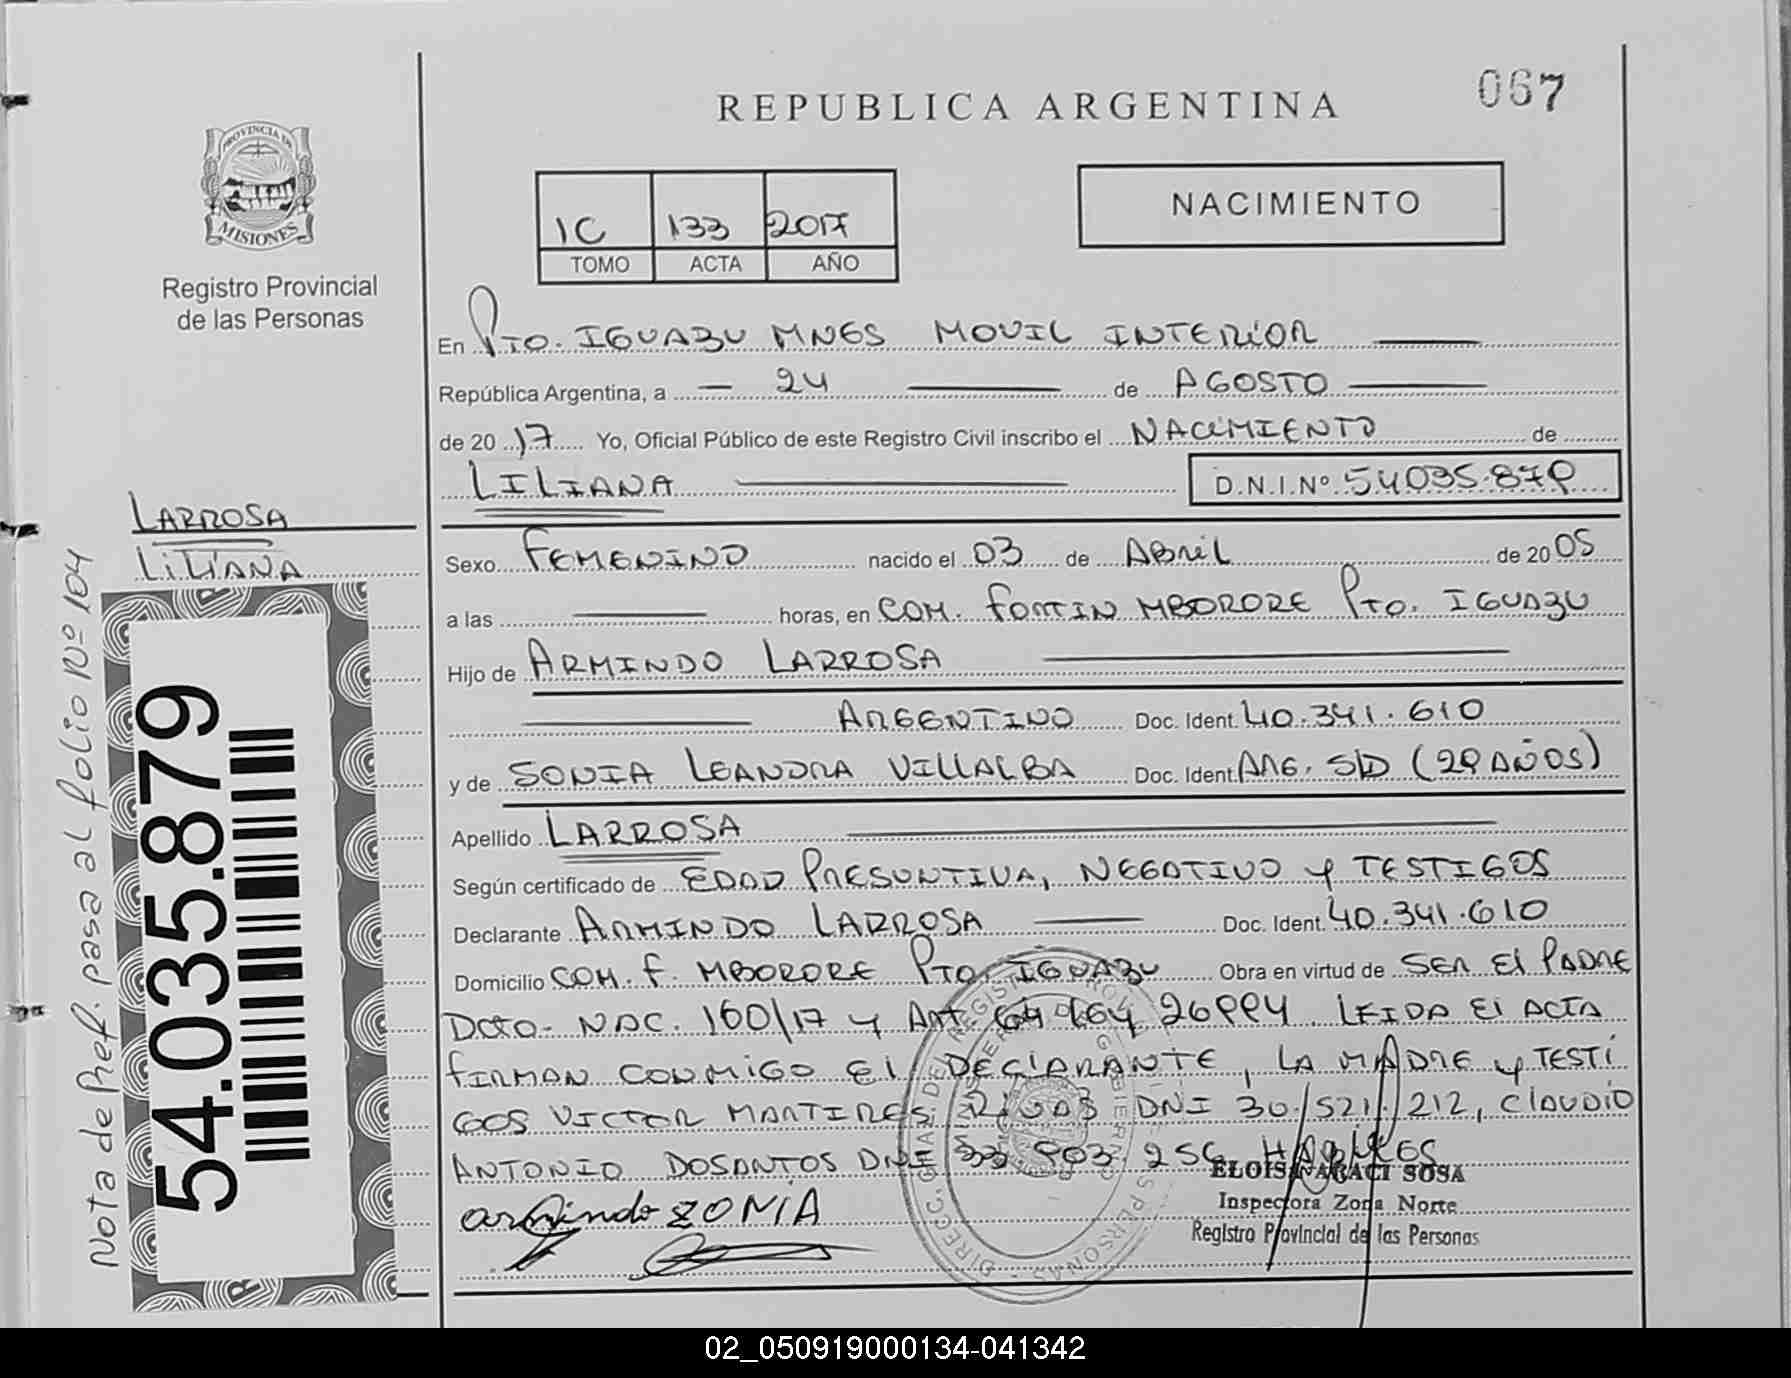 067
REPUBLICA ARGENTINA
PROVINCIA DE
MISIONES
Registro Provincial
de las Personas
1C 133 2017
TOMO ACTA AÑO
NACIMIENTO
En Pto. IGUAZU MNES MOVIL INTERIOR
República Argentina, a 24 de AGOSTO
de 20 17 Yo, Oficial Público de este Registro Civil inscribo el NACIMIENTO de
LILIANA D.N.I.Nº 54035.879
LARROSA
LILIANA
Sexo FEMENINO nacido el 03 de ABRIL de 20 05
a las horas, en COM. FORTIN MBORORE PTO. IGUAZU
Hijo de ARMINDO LARROSA
ARGENTINO Doc. Ident. 40.341.610
y de SONIA LEANDRA VILLALBA Doc. Ident. ARG. S/D (29 AÑOS)
Apellido LARROSA
Según certificado de EDAD PRESUNTIVA, NEGATIVO y TESTIGOS
Declarante ARMINDO LARROSA Doc. Ident. 40.341.610
Domicilio COM. F. MBORORE PTO. IGUAZU Obra en virtud de SER EL PADRE
Dcto. NAC. 160/17 y Art. 64 Ley 26994. LEIDA EL ACTA
FIRMAN CONMIGO EL DECLARANTE, LA MADRE y TESTI
GOS VICTOR MARTIRES RIVAS DNI 30.521.212, CLAUDIO
ANTONIO DOSANTOS DNI 33 903 256
ELOISA NARACI SOSA
Inspectora Zona Norte
Registro Provincial de las Personas
armindo ZONIA
Nota de Ref. pasa al folio Nº 104
54.035.879
02_050919000134-041342